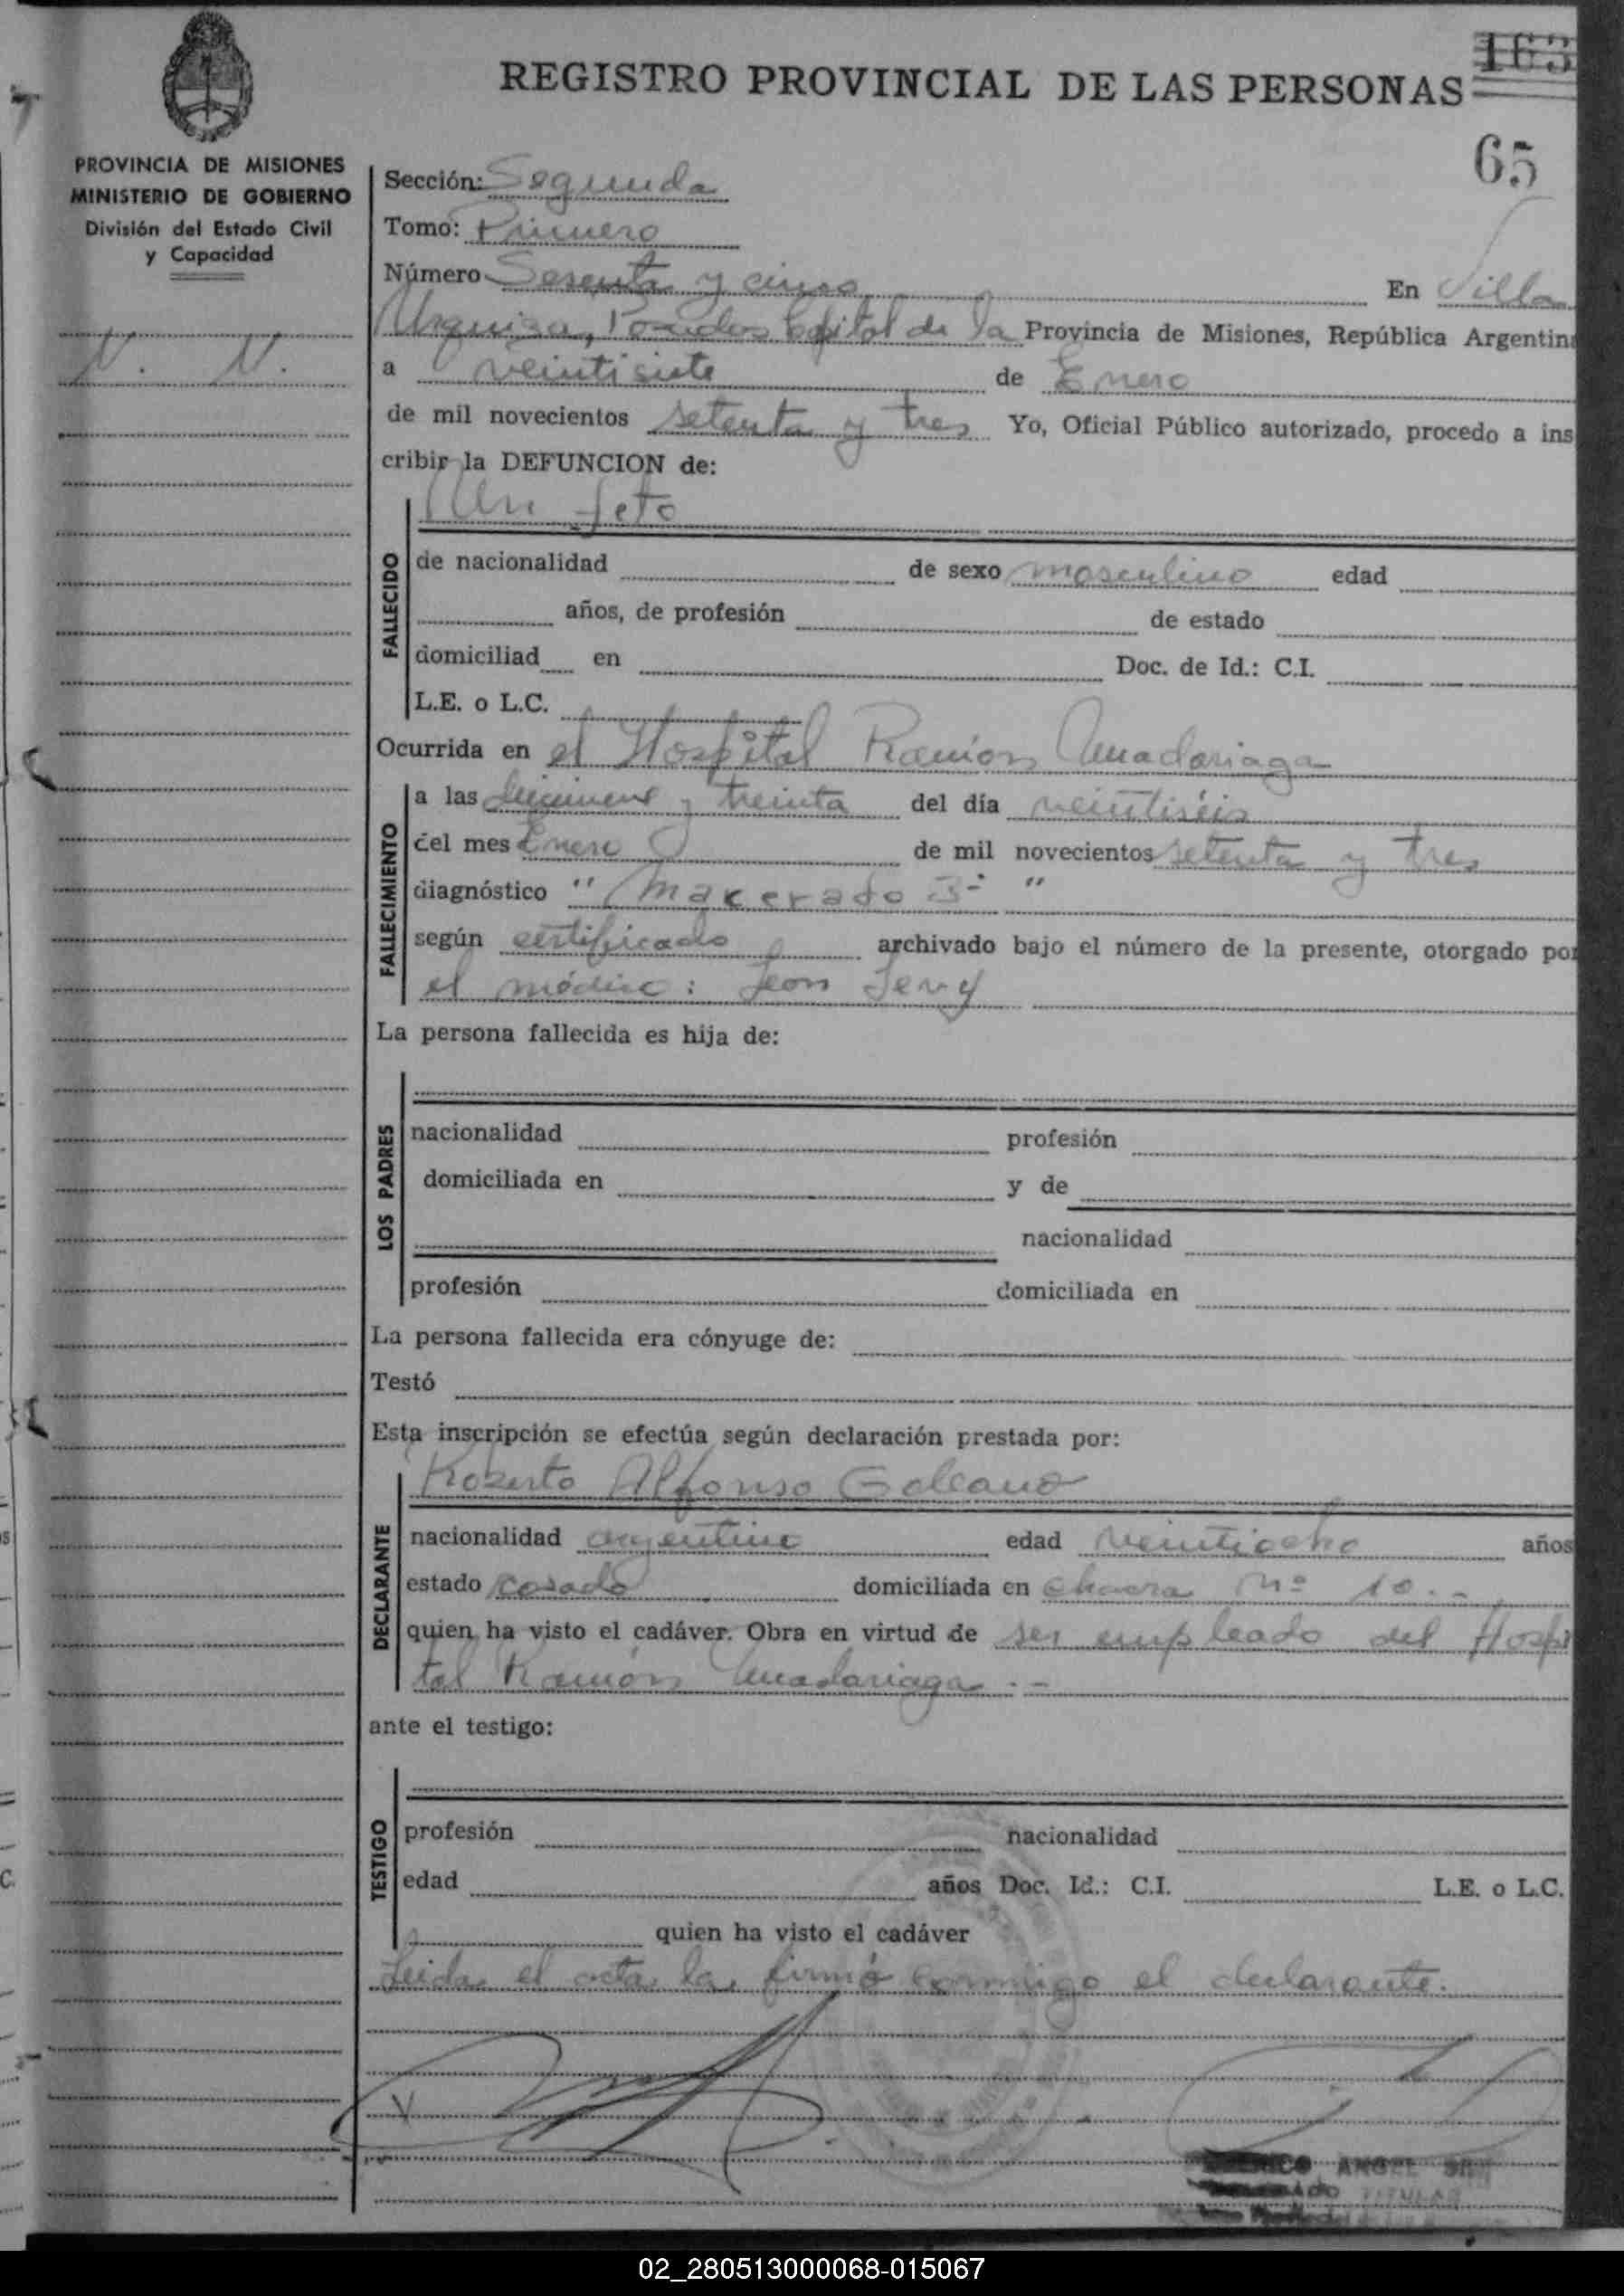 163
REGISTRO PROVINCIAL DE LAS PERSONAS
65
PROVINCIA DE MISIONES
MINISTERIO DE GOBIERNO
División del Estado Civil
y Capacidad
N. N.
Sección: Segunda
Tomo: Primero
Número Sesenta y cinco En Villa
Urquiza, Posadas Capital de la Provincia de Misiones, República Argentina
a veintisiete de Enero
de mil novecientos setenta y tres Yo, Oficial Público autorizado, procedo a ins
cribir la DEFUNCION de:
Un feto
FALLECIDO
de nacionalidad de sexo masculino edad
años, de profesión de estado
domiciliad en Doc. de Id.: C.I.
L.E. o L.C.
Ocurrida en el Hospital Ramón Madariaga
FALLECIMIENTO
a las diecinueve y treinta del día veintiséis
del mes Enero de mil novecientos setenta y tres
diagnóstico " Macerado 3- "
según certificado archivado bajo el número de la presente, otorgado por
el médico: León
La persona fallecida es hija de:
LOS PADRES
nacionalidad profesión
domiciliada en y de
nacionalidad
profesión domiciliada en
La persona fallecida era cónyuge de:
Testó
Esta inscripción se efectúa según declaración prestada por:
Roberto Alfonso Galeano
DECLARANTE
nacionalidad argentino edad veintiocho años
estado casado domiciliada en chacra Nº 10.-
quien ha visto el cadáver. Obra en virtud de ser empleado del Hospi
tal Ramón Madariaga.-
ante el testigo:
TESTIGO
profesión nacionalidad
edad años Doc. Id.: C.I. L.E. o L.C.
quien ha visto el cadáver
Leida el acta la firmó conmigo el declarante.
ANGEL
TITULAR
02_280513000068-015067